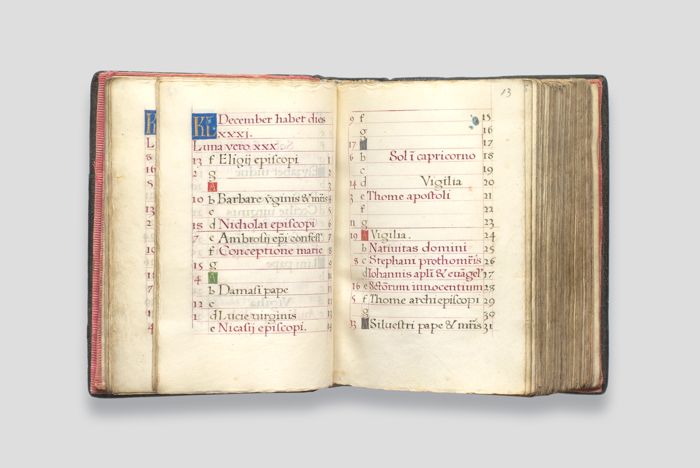 Kł December habet dies
xxxi.
Luna vero xxx.
13 f Eligij episcopi 1
2 g
A
10 b Barbare v̄ginis & mr̄is 4
c
15 d Nicholai ep̄iscopi
7 e Ambrosij ep̄i confess
f Conceptione marie
15 g
4 A
b Damasi pape
12 c
1 d Lucie virginis
e Nicasij ep̄iscopi.
13
9 f 15
g 16
17
6 b Sol ī capricorno 18
c 19
14 d Vigilia 20
3 e Thome apostoli 21
f 22
11 g 23
19 A Vigilia. 24
b Natiuitas domini 25
8 c Stephani prothomr̄is 26
d Iohannis apl̄i & euāgel 27
16 e Sctōrum innocentium 28
5 f Thome archiepiscopi 29
g 30
13 A Siluestri pape & mr̄is 31